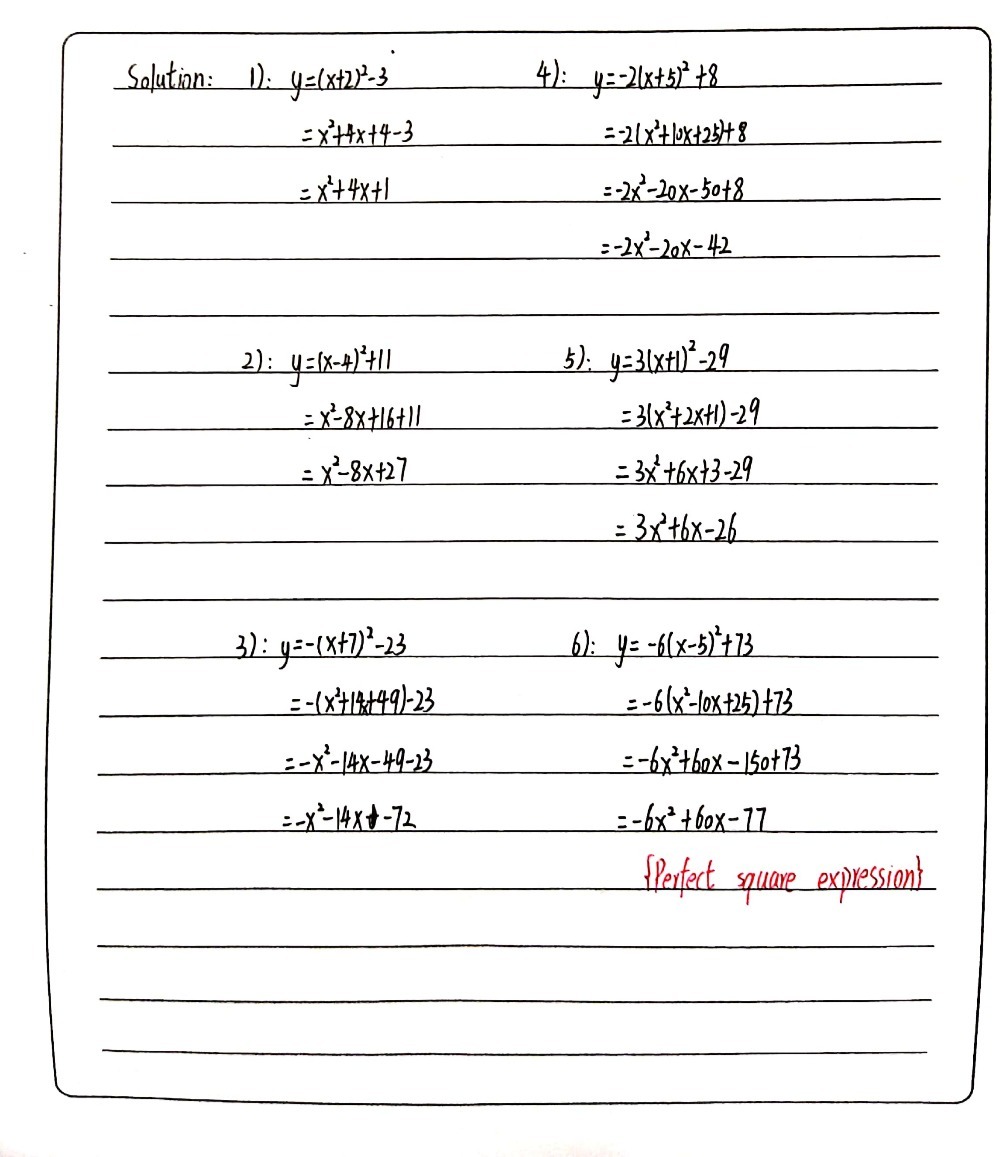 Solution: 1): y=(x+2)²-3
=x²+4x+4-3
=x²+4x+1
4): y=-2(x+5)²+8
=-2(x²+10x+25)+8
=-2x²-20x-50+8
=-2x²-20x-42
2): y=(x-4)²+11
=x²-8x+16+11
=x²-8x+27
5): y=3(x+1)²-29
=3(x²+2x+1)-29
=3x²+6x+3-29
=3x²+6x-26
3): y=-(x+7)²-23
=-(x²+14x+49)-23
=-x²-14x-49-23
=-x²-14x-72
6): y=-6(x-5)²+73
=-6(x²-10x+25)+73
=-6x²+60x-150+73
=-6x²+60x-77
{Perfect square expression}